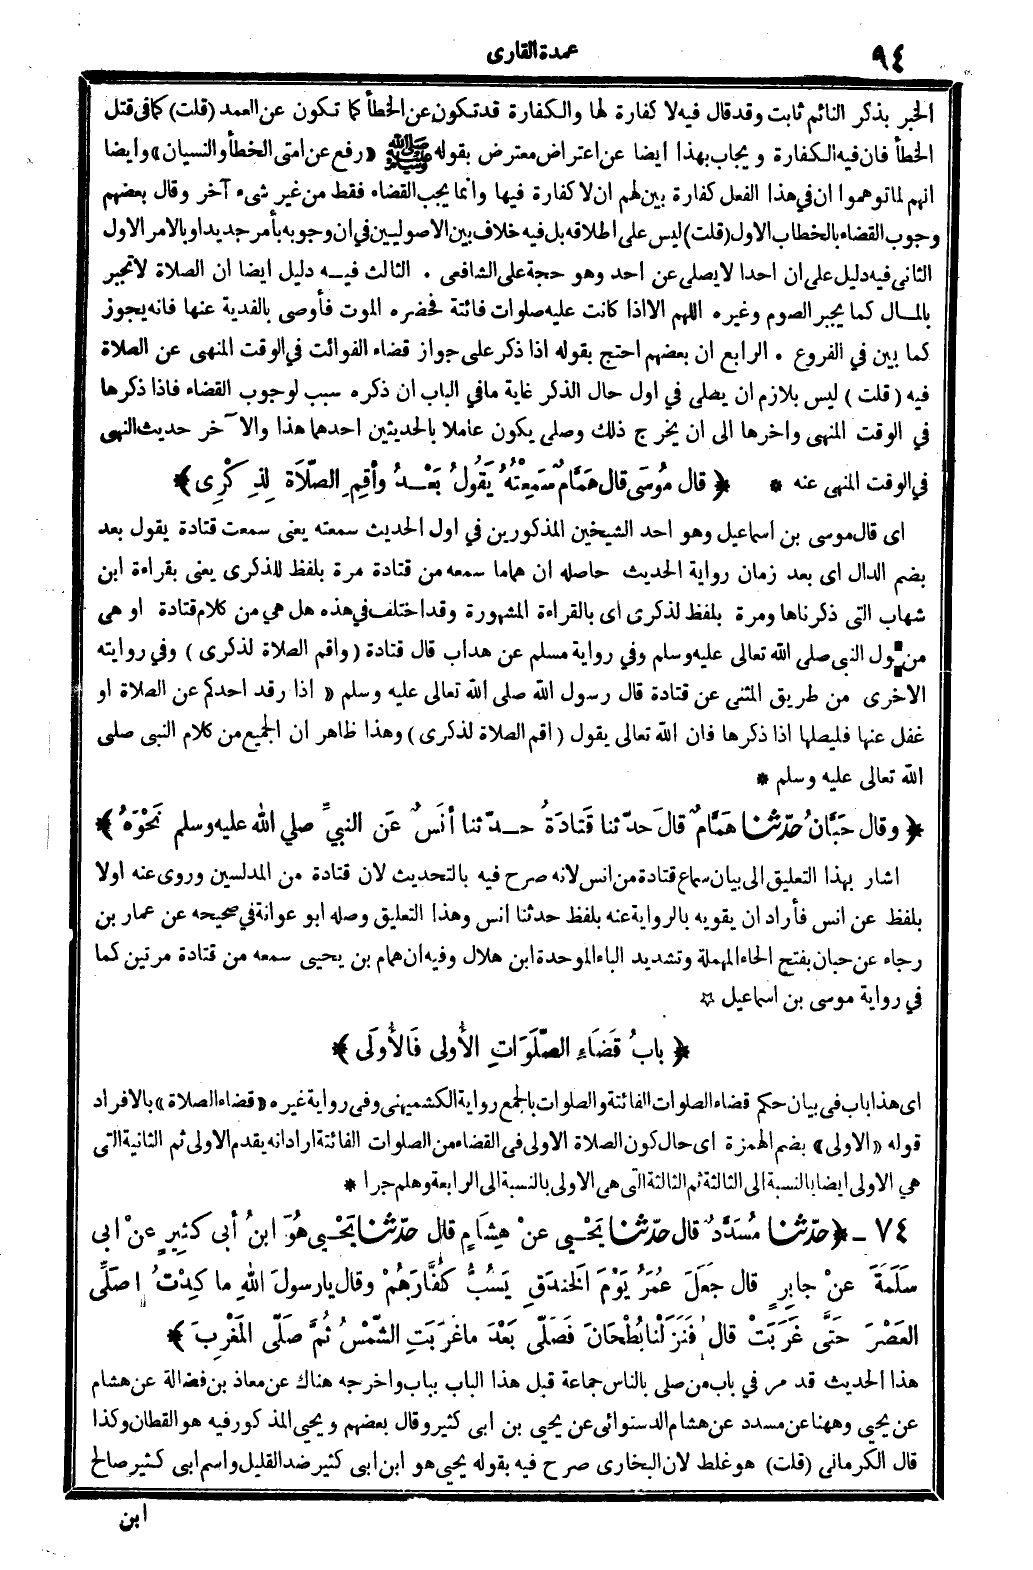 ٩٤
عمدة القارى
الخبر بذكر النائم ثابت وقد قال فيه لا كفارة لها والكفارة قد تكون عن الخطأ كما تكون عن العمد (قلت) كما فى قتل
الخطأ فان فيه الكفارة ويجاب بهذا ايضا عن اعتراض معترض بقوله ﷺ «رفع عن امتى الخطأ والنسيان» وأيضا
انهم لما توهموا ان فى هذا الفعل كفارة بين لهم ان لا كفارة فيها وانما يجب القضاء فقط من غير شىء آخر وقال بعضهم
وجوب القضاء بالخطاب الاول (قلت) ليس على اطلاقه بل فيه خلاف بين الاصوليين فى ان وجوبه بأمر جديد او بالامر الاول
الثانى فيه دليل على ان احدا لا يصلى عن احد وهو حجة على الشافعى . الثالث فيـه دليل ايضا ان الصلاة لا تجبر
بالمـال كما يجبر الصوم وغيره اللهم الا اذا كانت عليه صلوات فائتة فحضره الموت فأوصى بالفدية عنها فانه يجوز
كما بين في الفروع . الرابع ان بعضهم احتج بقوله اذا ذكر على جواز قضاء الفوائت في الوقت المنهى عن الصلاة
فيه (قلت) ليس بلازم ان يصلى في اول حال الذكر غاية مافي الباب ان ذكره سبب لوجوب القضاء فاذا ذكرها
في الوقت المنهى واخرها الى ان يخرج ذلك وصلى يكون عاملا بالحديثين احدهما هذا والآخر حديث النهى
في الوقت المنهى عنه * ﴿ قال مُوسَى قال هَمَّامٌ سَمِعْتُهُ يَقُولُ بَعْـدُ وأقِمِ الصَّلاَةَ لِذِكْرِى ﴾
اى قال موسى بن اسماعيل وهو احد الشيخين المذكورين في اول الحديث سمعته يعنى سمعت قتادة يقول بعد
بضم الدال اى بعد زمان رواية الحديث حاصله ان هماما سمعه من قتادة مرة بلفظ للذكرى يعنى بقراءة ابن
شهاب التى ذكرناها ومرة بلفظ لذكرى اى بالقراءة المشهورة وقد اختلف في هذه هل هي من كلام قتادة او هي
من قول النبى صلى الله تعالى عليه وسلم وفي رواية مسلم عن هداب قال قتادة (واقم الصلاة لذكرى) وفي روايته
الاخرى من طريق المثنى عن قتادة قال رسول الله صلى الله تعالى عليه وسلم « اذا رقد احدكم عن الصلاة او
غفل عنها فليصلها اذا ذكرها فان الله تعالى يقول (اقم الصلاة لذكرى) وهذا ظاهر ان الجميع من كلام النبى صلى
الله تعالى عليه وسلم *
﴿ وقال حَبَّانُ حدّثنا هَمَّامٌ قال حدّثنا قَتَادَةُ حـدّثنا أنَسٌ عَنِ النبيِّ صلي الله عليه وسلم نَحْوَهُ ﴾
اشار بهذا التعليق الى بيان سماع قتادة من انس لانه صرح فيه بالتحديث لان قتادة من المدلسين وروى عنه اولا
بلفظ عن انس فأراد ان يقويه بالرواية عنه بلفظ حدثنا انس وهذا التعليق وصله ابو عوانة في صحيحه عن عمار بن
رجاء عن حبان بفتح الحاء المهملة وتشديد الباء الموحدة ابن هلال وفيه ان همام بن يحيى سمعه من قتادة مرتين كما
في رواية موسى بن اسماعيل ☆
﴿ بابُ قَضَاءِ الصَّلَوَاتِ الأُولى فَالأُولَى ﴾
اى هذا باب فى بيان حكم قضاء الصلوات الفائتة والصلوات بالجمع رواية الكشميهنى وفى رواية غيره «قضاء الصلاة» بالافراد
قوله «الاولى» بضم الهمزة اى حال كون الصلاة الاولى فى القضاء من الصلوات الفائتة اراد انه يقدم الاولى ثم الثانية التى
هي الاولى ايضا بالنسبة الى الثالثة ثم الثالثة التى هى الاولى بالنسبة الى الرابعة وهلم جرا *
٧٤ - ﴿ حدّثنا مُسَدَّدٌ قال حدّثنا يَحْيي عنْ هِشَامٍ قال حدّثنا يَحْيي هُوَ ابنُ أبى كَثِيرٍ عنْ ابى
سَلَمَةَ عنْ جابِرٍ قال جَعَلَ عُمَرُ يَوْمَ الخَندَقِ يَسُبُّ كُفَّارَهُمْ وقال يا رسولَ اللهِ ما كِدْتُ اصَلِّى
العَصْرَ حَتَّى غَرَبَتْ قال فَنَزَلْنا بُطْحَانَ فَصَلّى بَعْدَ ما غَرَبَتِ الشَّمْسُ ثُمَّ صَلّى المَغْرِبَ ﴾
هذا الحديث قد مر في باب من صلى بالناس جماعة قبل هذا الباب بباب واخرجه هناك عن معاذ بن فضالة عن هشام
عن يحيي وههنا عن مسدد عن هشام الدستوائى عن يحيي بن ابى كثير وقال بعضهم ويحيي المذكور فيه هو القطان وكذا
قال الكرمانى (قلت) هو غلط لان البخارى صرح فيه بقوله يحيي هو ابن ابى كثير ضد القليل واسم ابى كثير صالح
ابن